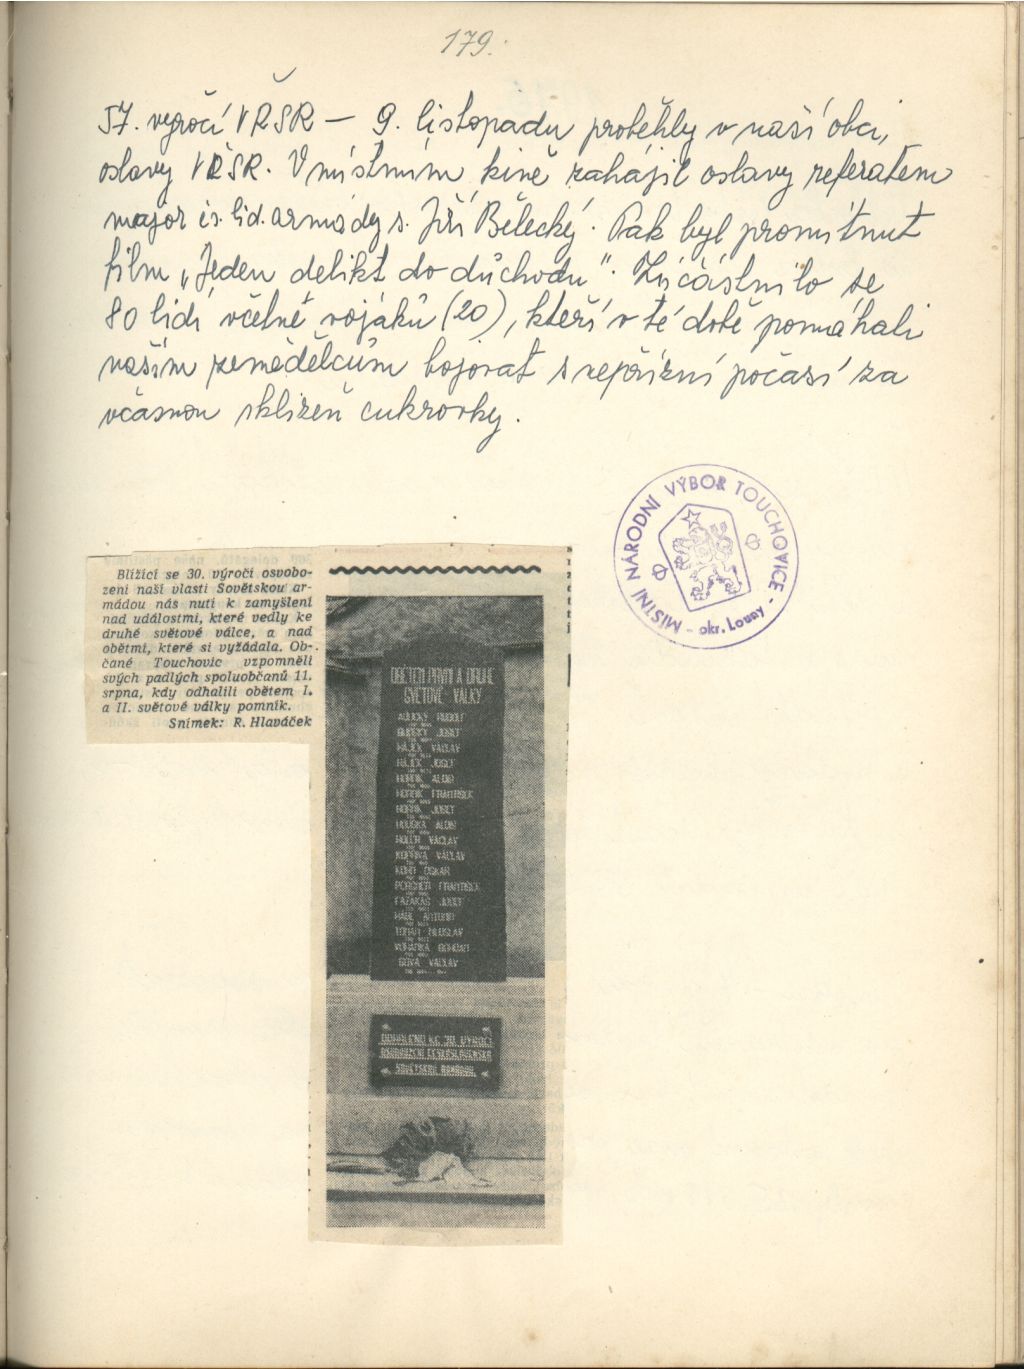 179.
57. výročí VŘSR — 9. listopadu proběhly v naší obci,
oslavy VŘSR. V místním kině zahájil oslavy referátem
major čs. lid. armády s. Jiří Bělecký. Pak byl promítnut
film „Jeden delikt do důchodu". Zúčástnilo se
80 lidí včetně vojáků (20), kteří v té době pomáhali
našim zemědělcům bojovat s nepřízní počasí za
včasnou sklizeň cukrovky.
MÍSTNÍ NÁRODNÍ VÝBOR TOUCHOVICE -
okr. Louny -
Blížící se 30. výročí osvobo-
zení naší vlasti Sovětskou ar-
mádou nás nutí k zamyšlení
nad událostmi, které vedly ke
druhé světové válce, a nad
obětmi, které si vyžádala. Ob-
čané Touchovic vzpomněli
svých padlých spoluobčanů 11.
srpna, kdy odhalili obětem I.
a II. světové války pomník.
Snímek: R. Hlaváček
OBĚTEM PRVNÍ A DRUHÉ
SVĚTOVÉ VÁLKY
RUDOLF
JOSEF
HÁJEK VÁCLAV
HÁJEK JOSEF
HORNÍK ALOIS
HORNÍK FRANTIŠEK
HORNÍK JOSEF
HOUSKA ALOIS
VÁCLAV
KOPŘIVA VÁCLAV
KOHN OSKAR
FRANTIŠEK
JOSEF
ANTONÍN
BOHDAN
VÁCLAV
ODHALENO KE 30. VÝROČÍ
OSVOBOZENÍ ČESKOSLOVENSKA
SOVĚTSKOU ARMÁDOU.